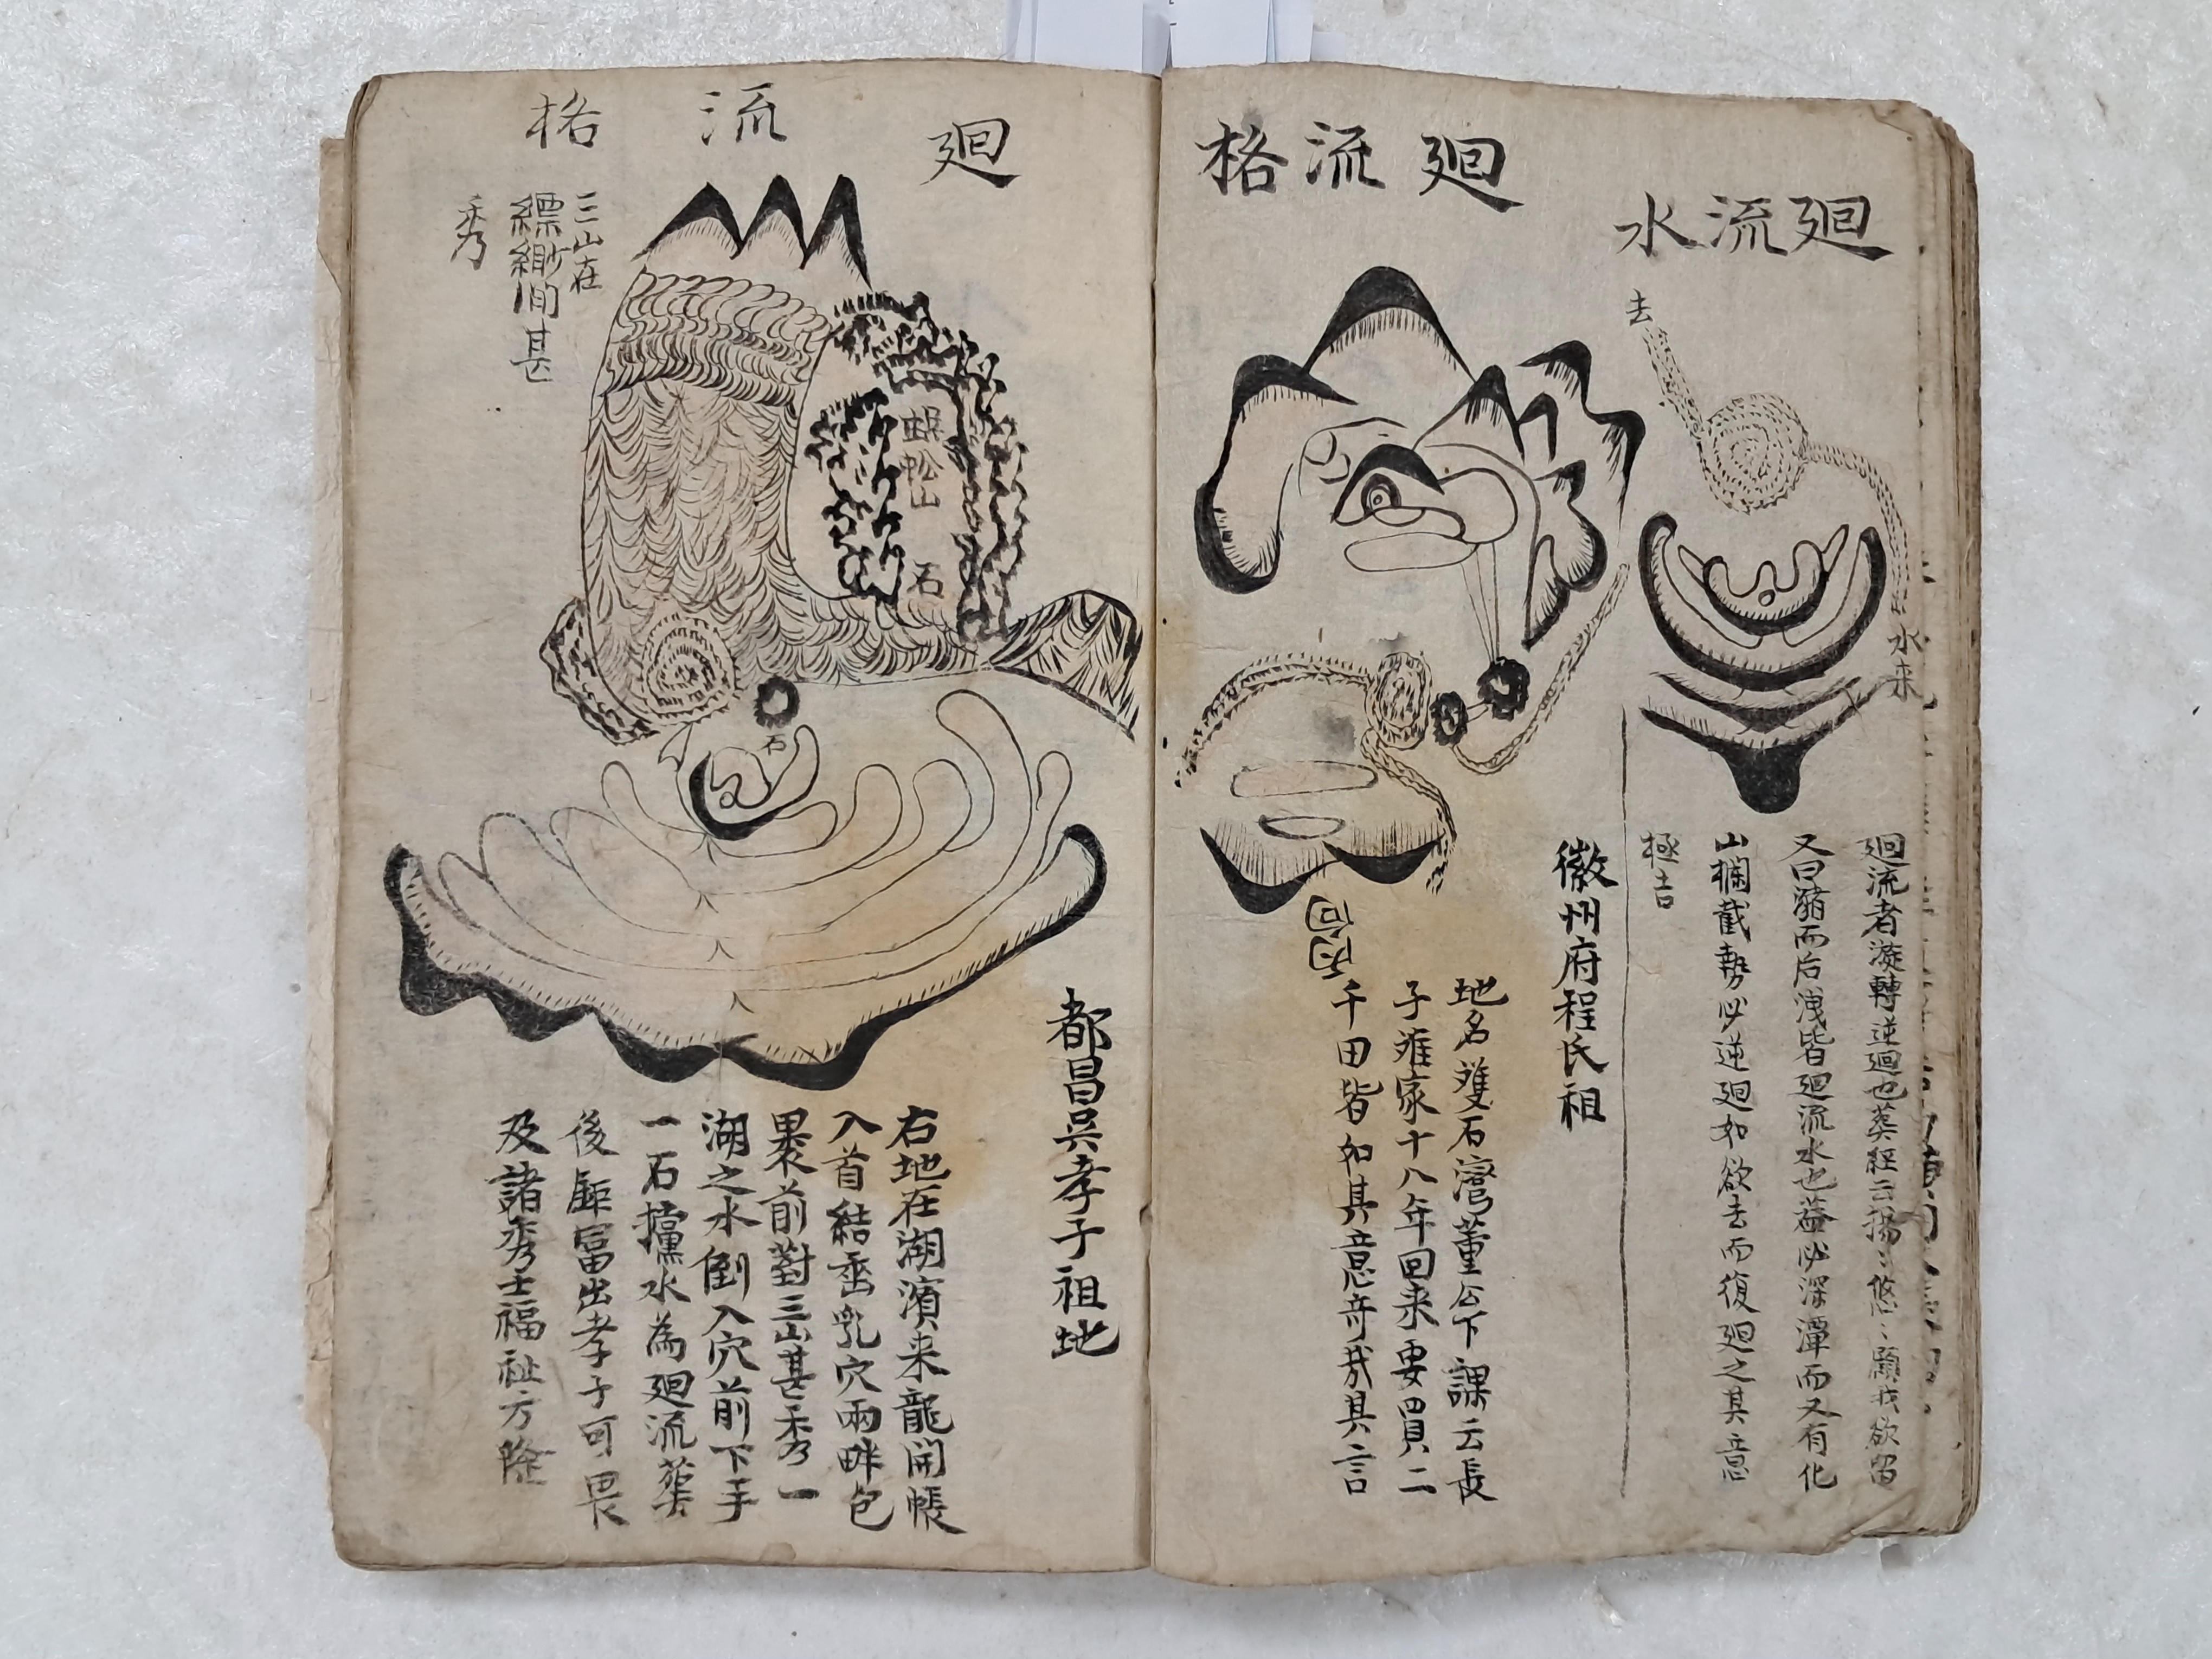 廻流水
去
水来
廻流者漩轉逆廻也葬経云揚〻悠〻顧我欲留
又曰瀦而后洩皆廻流水也葢必深潭而又有化
山欄截勢必逆廻如欲去而復廻之其意
極吉
廻流格
徽州府程氏祖
地名雙石灣董公下課云長
子難家十八年回来要買二
千田皆如其意竒㦲其言
丙向
廻流格
三山在
縹緲间甚
秀
蜈蚣山
石
石
都昌吳孝子祖地
右地在湖濱来龍開帳
入首結垂乳穴兩畔包
褁前對三山甚秀一
湖之水倒入穴前下手
一石攩水為廻流葬
後鉅富出孝子可畏
及諸秀士福祉方隆